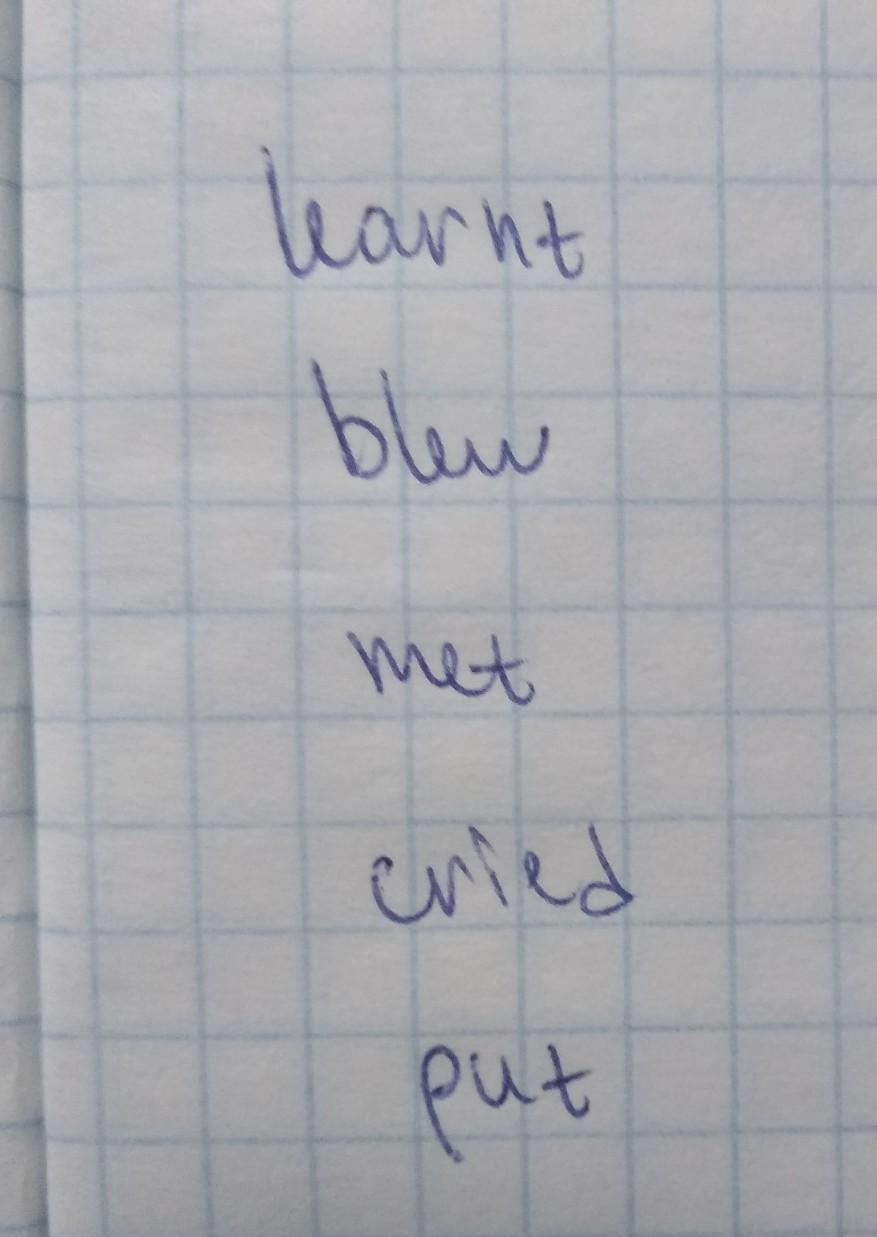 learnt
blew
met
cried
put